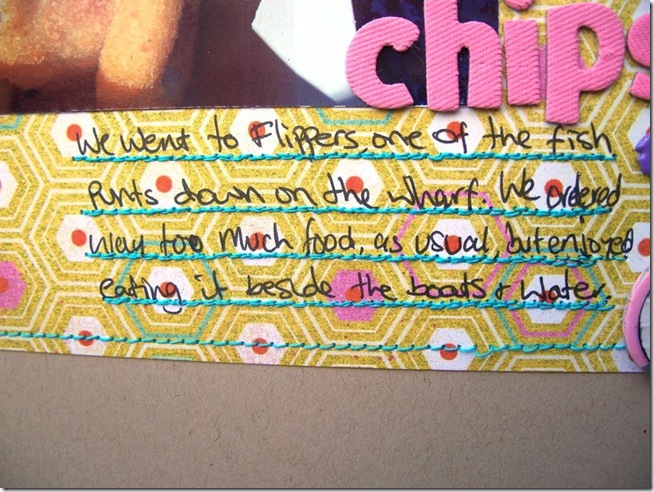 chips
We went to Flippers, one of the fish
punts down on the wharf. We ordered
way too much food, as usual, but enjoyed
eating it beside the boats & water.